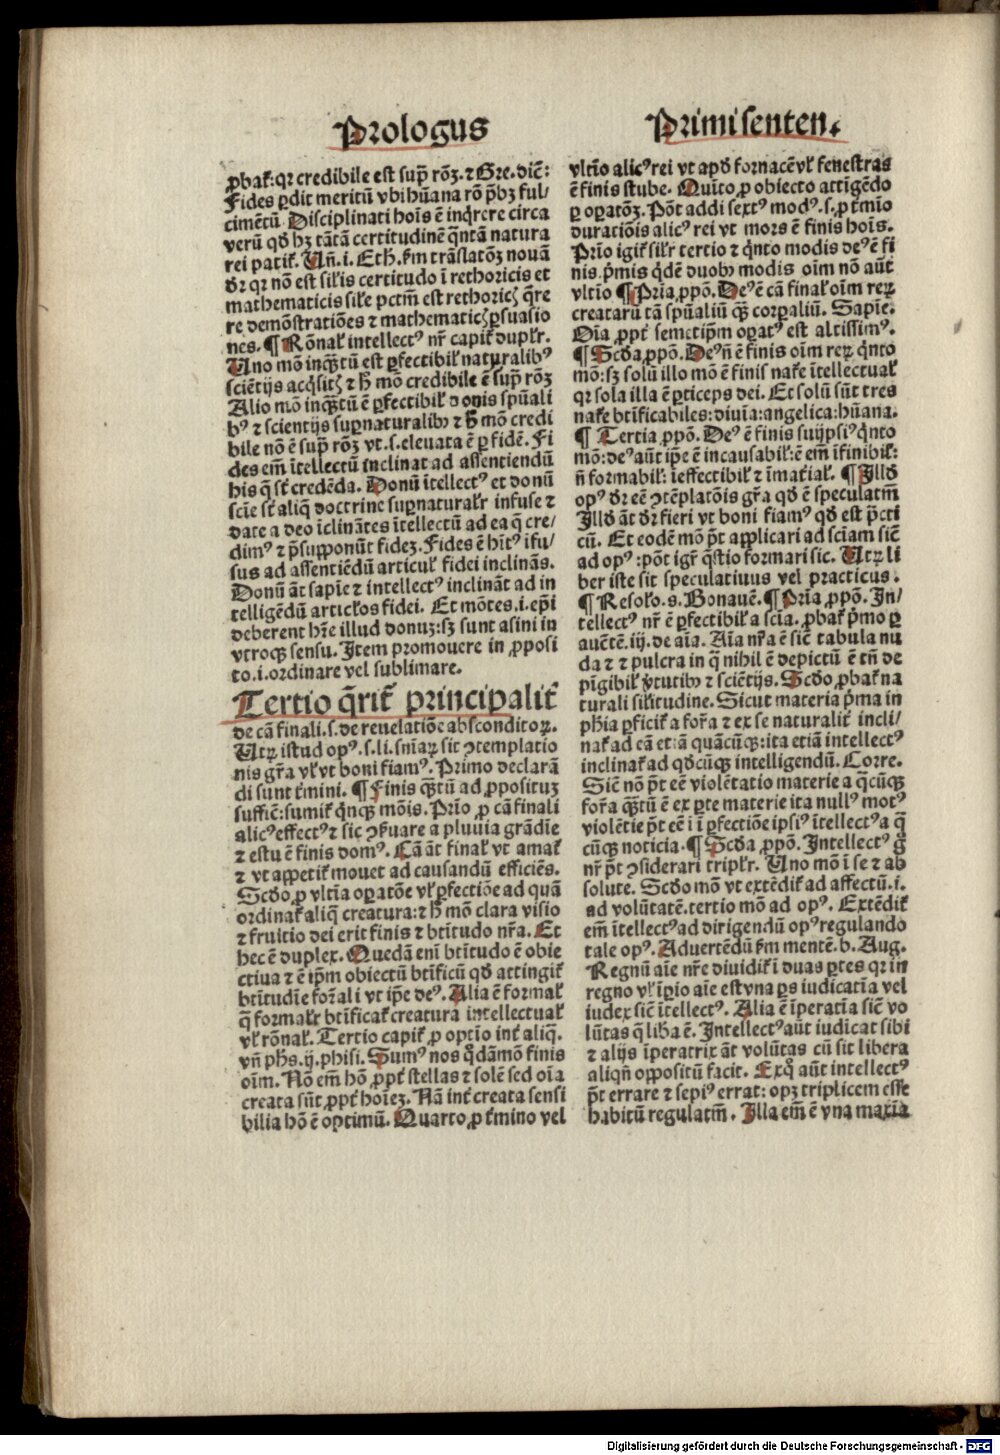 Prologus
ꝓbat᷒: qꝛ credibile est sup̄ rōꝫ. ⁊ Gre. dic̄:
Fides ꝑdit meritū vbi hūana rō p̄bꝫ ful/
cimētū. Disciplinati hoīs ē inq̄rere circa
verū qd̓ hꝫ tātā certitudinē q̄ntā natura
rei patit᷒. Uñ .i. Eth. ẜm trāslatōꝫ nouā
dꝛ qꝛ nō est sil̓is certitudo ī rethoricis et
mathematicis sil̓e pctm̄ est rethoricꝭ q̄re
re demōstratiōes ⁊ mathematicꝭ ꝑsuasio
nes. ¶ Rōnal̓ intellectꝰ nr̄ capit᷒ dupl̓r.
Uno mō inq̄tū est ꝑfectibil̓ naturalibꝰ
sciētijs acq̇sitꝭ ⁊ h̓ mō credibile ē sup̄ rōꝫ
Alio mō inq̄tū ē ꝑfectibil̓ donis spūali
bꝰ ⁊ scientijs suꝑnaturalibꝰ ⁊ h̓ mō credi
bile nō ē sup̄ rōꝫ vt .s. eleuata ē ꝑ fidē. Fi
des em̄ ītellectū inclinat ad assentiendū
his q̄ st̄ credēda. Donū ītellectꝰ et donū
scīe st̄ aliq̄ doctrine suꝑnatural̓r infuse ⁊
date a deo īclināntes ītellectū ad ea q̄ cre/
dimꝰ ⁊ p̄supponūt fideꝫ. Fides ē hītꝰ ifu/
sus ad assentiēdū articul̓ fidei inclināns.
Donū āt sapīe ⁊ intellectꝰ inclināt ad in
telligēdū articl̓os fidei. Et mōtes .i. ep̄i
deberent hr̄e illud donuꝫ: sꝫ sunt asini in
vtroqꝫ sensu. Item promouere in ꝓposi
to .i. ordinare vel sublimare.
Tertio q̄rit᷒ principalit᷒
de cā finali .s. de reuelatiōe absconditoꝝ.
Utꝝ istud opꝰ .s. li. snīaꝝ sit ꝯtemplatio
nis gr̄a vl̓ vt boni fiamꝰ. Primo declarā
di sunt t̄mini. ¶ Finis q̄tū ad ꝓpositum
suffic̄: sumit᷒ q̇nqꝫ mōis. Pr̄io ꝓ cā finali
alicꝰ effectꝰ ⁊ sic ꝯẜuare a pluuia grādīe
⁊ estu ē finis domꝰ. Cā āt final̓ vt amat᷒
⁊ vt appetit᷒ mouet ad causandū efficiēs.
Scd̓o ꝓ vltīa oꝑatōe vl̓ ꝑfectiōe ad quā
ordinat᷒ aliq̄ creatura: ⁊ h̓ mō clara visio
⁊ fruitio dei erit finis ⁊ btītudo nr̄a. Et
hec ē duplex. Quedā eni btītudo ē obie
ctiua ⁊ ē ip̄m obiectū btīficū qd̓ attingit᷒
btītudīe for̄ali vt ip̄e deꝰ. Alia ē formal̓
q̄ formal̓r btīficat᷒ creatura intellectual̓
vl̓ rōnal̓. Tertio capit᷒ ꝓ optīo int̓ aliq̄.
vñ ph̄s .ij. phisi. Sumꝰ nos q̇dāmō finis
oīm. Nō em̄ hō ꝓpt̓ stellas ⁊ solē sed oīa
creata sūt ꝓpt̓ hoīeꝫ. Nā int̓ creata sensi
bilia hō ē optimū. Quarto ꝓ t̄mino vel
Primi senten.
vltīo alicꝰ rei vt apd̓ fornacē vl̓ fenestras
ē finis stube. Quīto ꝓ obiecto attīgēdo
ꝑ oꝑatōꝫ. Pōt addi sextꝰ modꝰ .s. ꝓ t̄mīo
duratiōis alicꝰ rei vt mors ē finis hoīs.
Pr̄io igit᷒ sil̓r tertio ⁊ q̇nto modis deꝰ ē fi
nis. p̄mis q̇dē duobꝰ modis oīm nō aūt
vltīo ¶ Pr̄ia ꝓpō. Deꝰ ē cā final̓ oīm reꝝ
creatarū tā spūaliū q̄ꝫ corꝑaliū. Sapīe.
Oīa ꝓpt̓ semetip̄m oꝑatꝰ est altissimꝰ.
¶ Scd̓a ꝓpō. Deꝰ ñ ē finis oīm reꝝ q̇nto
mō: sꝫ solū illo mō ē finis nat᷒e ītellectual̓
qꝛ sola illa ē ꝑticeps dei. Et solū sūt tres
nat᷒e btīficabiles: diuīa: angelica: hūana.
¶ Tertia ꝓpō. Deꝰ ē finis suijpsiꝰ q̇nto
mō: deꝰ aūt ip̄e ē incausabil̓: ē em̄ īfinibil̓:
ñ formabil̓: īeffectibil̓ ⁊ īmat̓ial̓. ¶ Illd̓
opꝰ dꝛ eē ꝯtēplatōis gr̄a qd̓ ē speculatm̄
Illd̓ āt dꝛ fieri vt boni fiamꝰ qd̓ est p̄cti
cū. Et eodē mō p̄t applicari ad scīam sic̄
ad opꝰ: pōt igr̄ q̄stio formari sic. Utꝝ li
ber iste sit speculatiuus vel practicus.
¶ Resol̓o. s. Bonauē. ¶ Pr̄ia ꝓpō. In/
tellectꝰ nr̄ ē ꝑfectibil̓ a scīa. ꝓbat᷒ p̄mo ꝑ
auētē. iij. de aīa. Aīa nr̄a ē sic̄ tabula nu
da ⁊ ⁊ pulcra in q̄ nihil ē depictū ē tñ de
pīgibil̓ v̓tutibꝰ ⁊ sciētijs. Scd̓o ꝓbat᷒ na
turali sil̓itudine. Sicut materia p̄ma in
ph̄ia ꝑficit᷒ a for̄a ⁊ ex se naturalit᷒ incli/
nat᷒ ad eā etiā quācūqꝫ: ita etiā intellectꝰ
inclinat᷒ ad qd̓cūqꝫ intelligendū. Corre.
Sic̄ nō p̄t eē violētatio materie a q̄cūqꝫ
for̄a q̄tū ē ex ꝑte materie ita nullꝰ motꝰ
violētie p̄t eē i ī ꝑfectiōe ipsiꝰ ītellectꝰ a q̄
cūqꝫ noticia. ¶ Scd̓a ꝓpō. Intellectꝰ g̊
nr̄ p̄t ꝯsiderari tripl̓r. Uno mō ī se ⁊ ab
solute. Scd̓o mō vt extēdit᷒ ad affectū .i.
ad volūtatē. tertio mō ad opꝰ. Extēdit᷒
em̄ ītellectꝰ ad dirigendū opꝰ regulando
tale opꝰ. Aduertēdū ẜm mentē. b. Aug.
Regnū aīe nr̄e diuidit᷒ ī duas ꝑtes qꝛ in
regno vl̓ īꝑio aīe est vna ꝑs iudicatīa vel
iudex sic̄ ītellectꝰ. Alia ē īperatīa sic̄ vo
lūtas q̄ lib̓a ē. Intellectꝰ aūt iudicat sibi
⁊ alijs īperatrix āt volūtas cū sit libera
aliqñ oppositū facit. Ex q̊ aūt intellectꝰ
p̄t errare ⁊ sepiꝰ errat: opꝫ triplicem esse
habitū regulatm̄. Illa em̄ ē vna maxīa
Digitalisierung gefördert durch die Deutsche Forschungsgemeinschaft - DFG